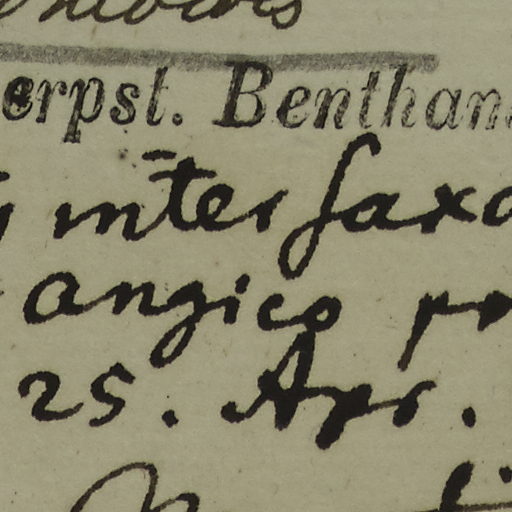 erpst. Bentham
inter saxa
angico po
25. Apr.